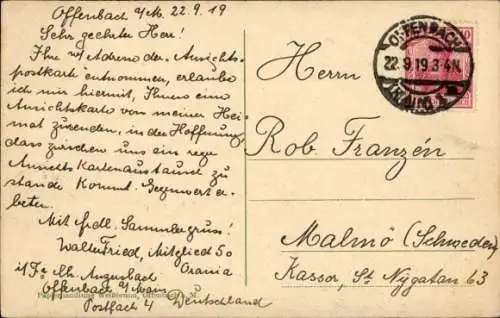 Offenbach a/M. 22.9.19
Sehr geehrter Herr!
Ihre w/ Adresse der Ansichts-
postkarte entnommen, erlaube
ich mir hiermit, Ihnen eine
Ansichtskarte von meiner Hei-
mat zusenden, in der Hoffnung,
dass zwischen uns ein rege
Ansichtskartenaustausch zu
stande kommt. Gegenwert er-
beten.
Mit frdl. Sammlergruss!
Walter Fried, Mitglied 50
Orania
i/Fa
Offenbach a/Main
Postfach 4 Deutschland
Papierhandlung Offenbach a. M.
OFFENBACH
22.9.19.3-4N.
(MAIN) 1
10
Herrn
Rob. Franzén
Malmö (Schweden)
Kassör, St Nygatan 63